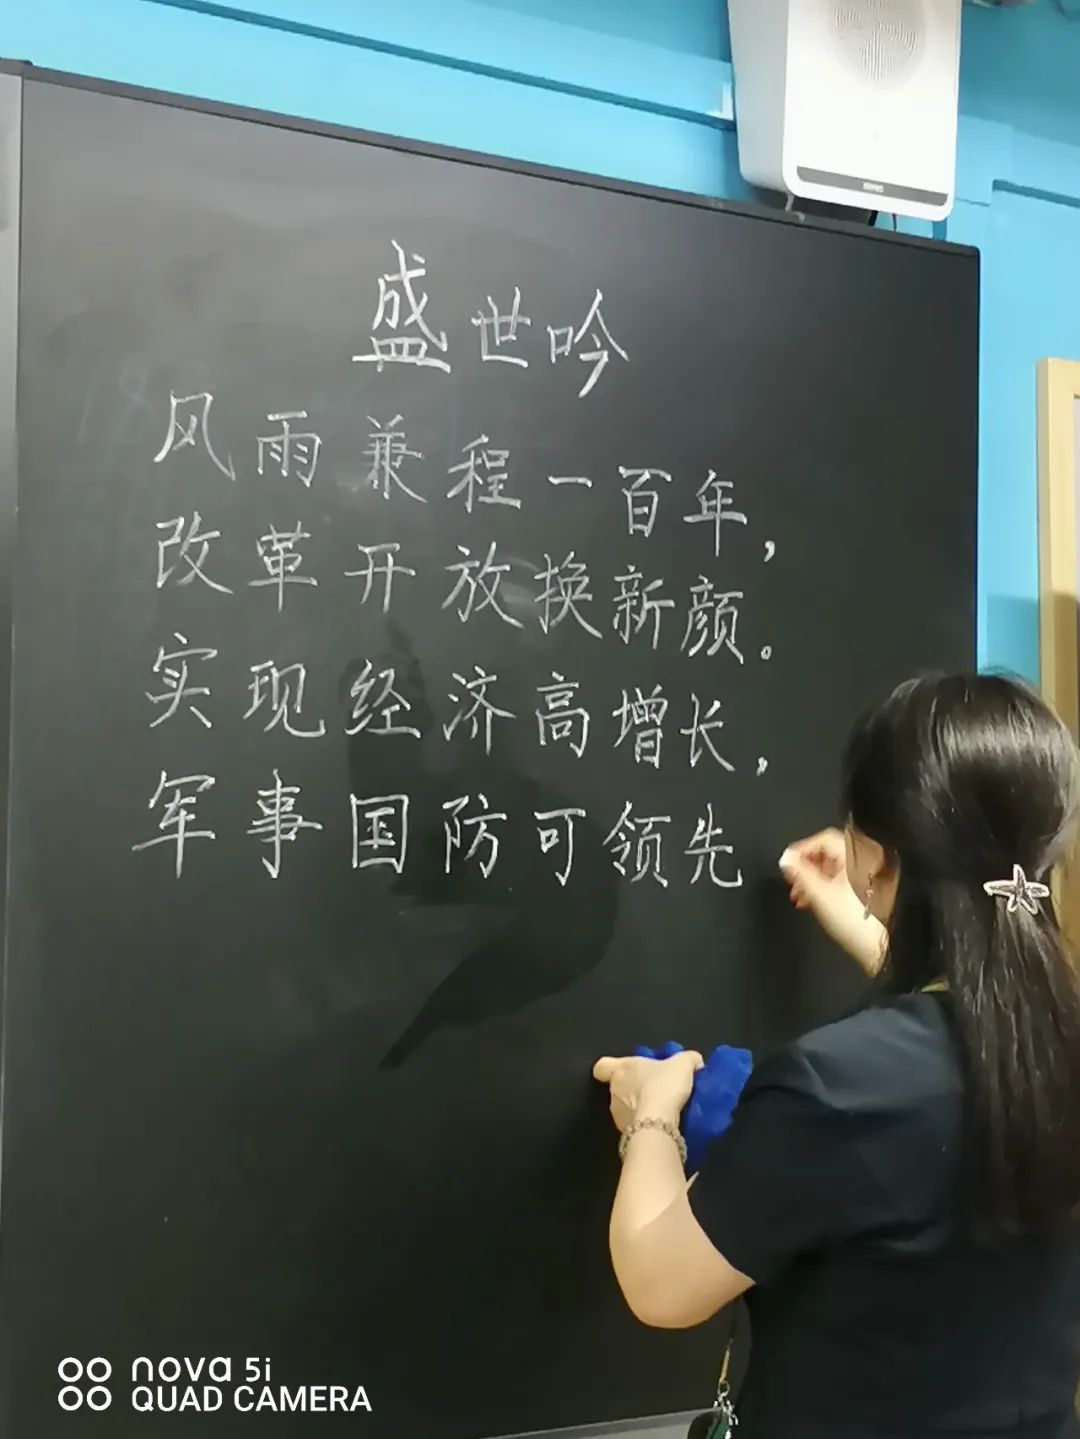 盛世吟
风雨兼程一百年，
改革开放换新颜。
实现经济高增长，
军事国防可领先
nova 5i
QUAD CAMERA